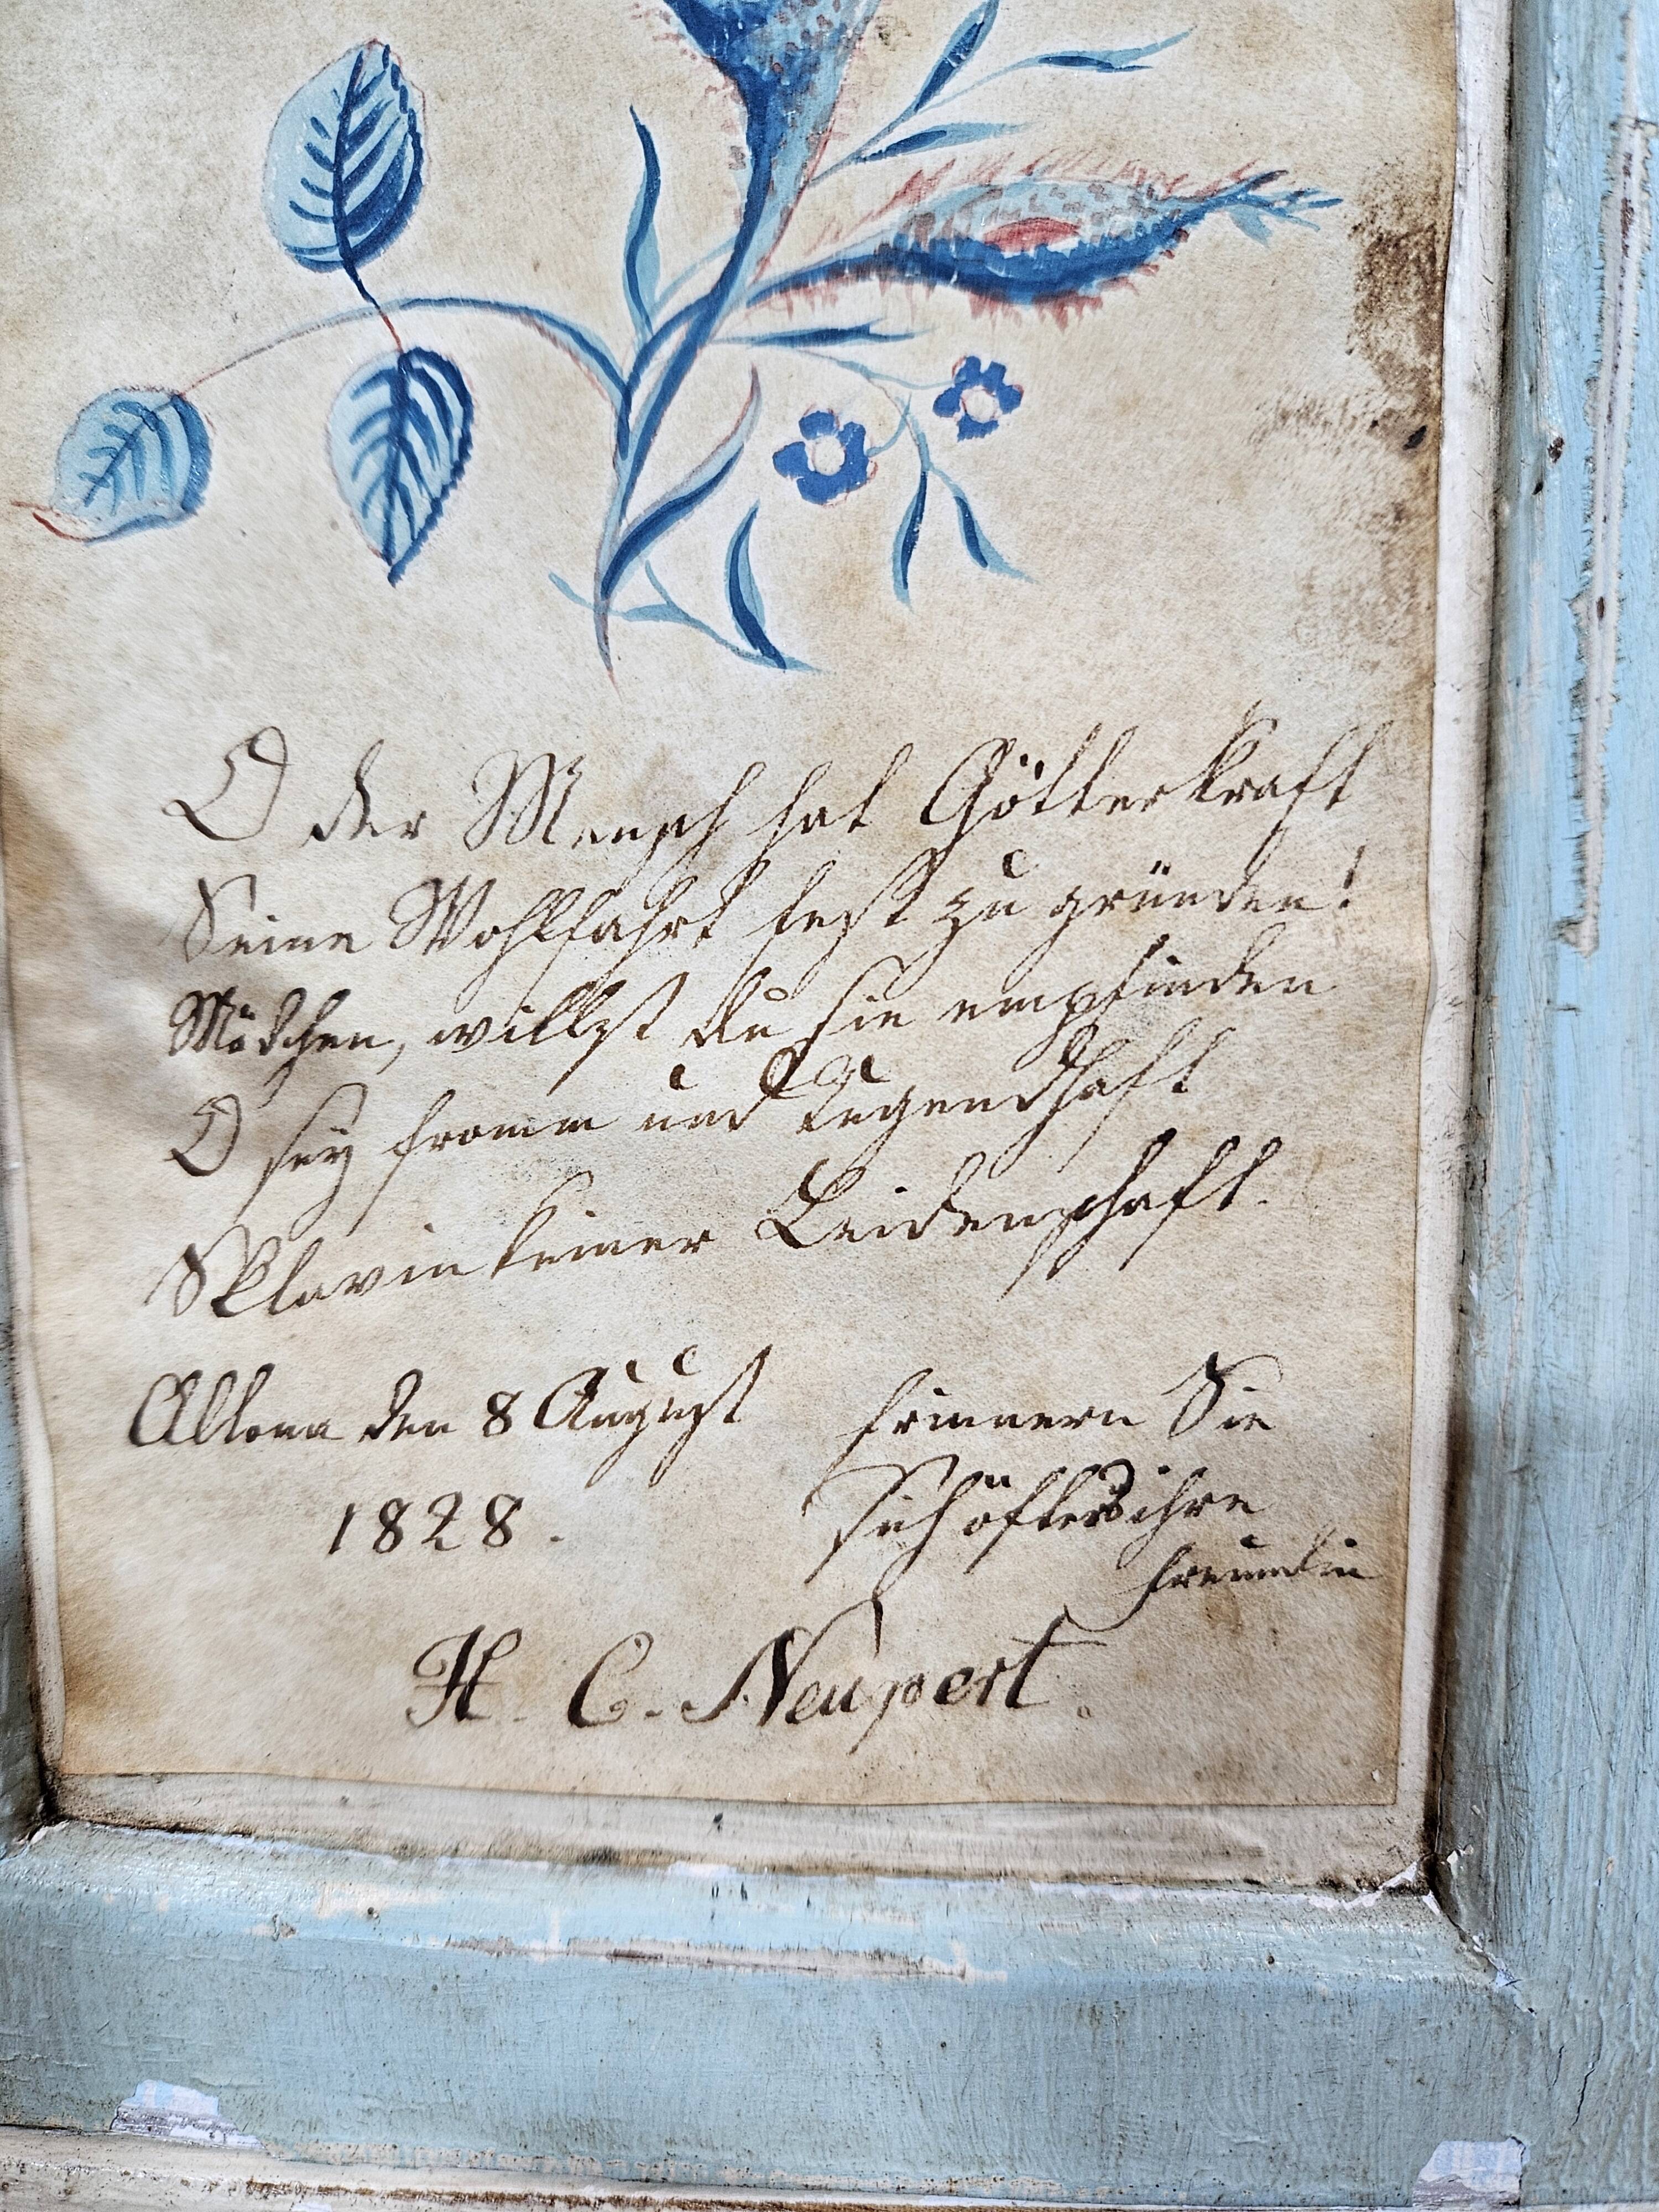 O der Mensch hat Götterkraft
Seine Wohlfahrt fest zu gründen!
Mädchen, willst du sie empfinden
O sey fromm und tugendhaft
Sklavin keiner Leidenschaft.
Altona den 8 August
1828.
Erinnern Sie
Sich öfters ihre
Freundin
H. C. Neupert.